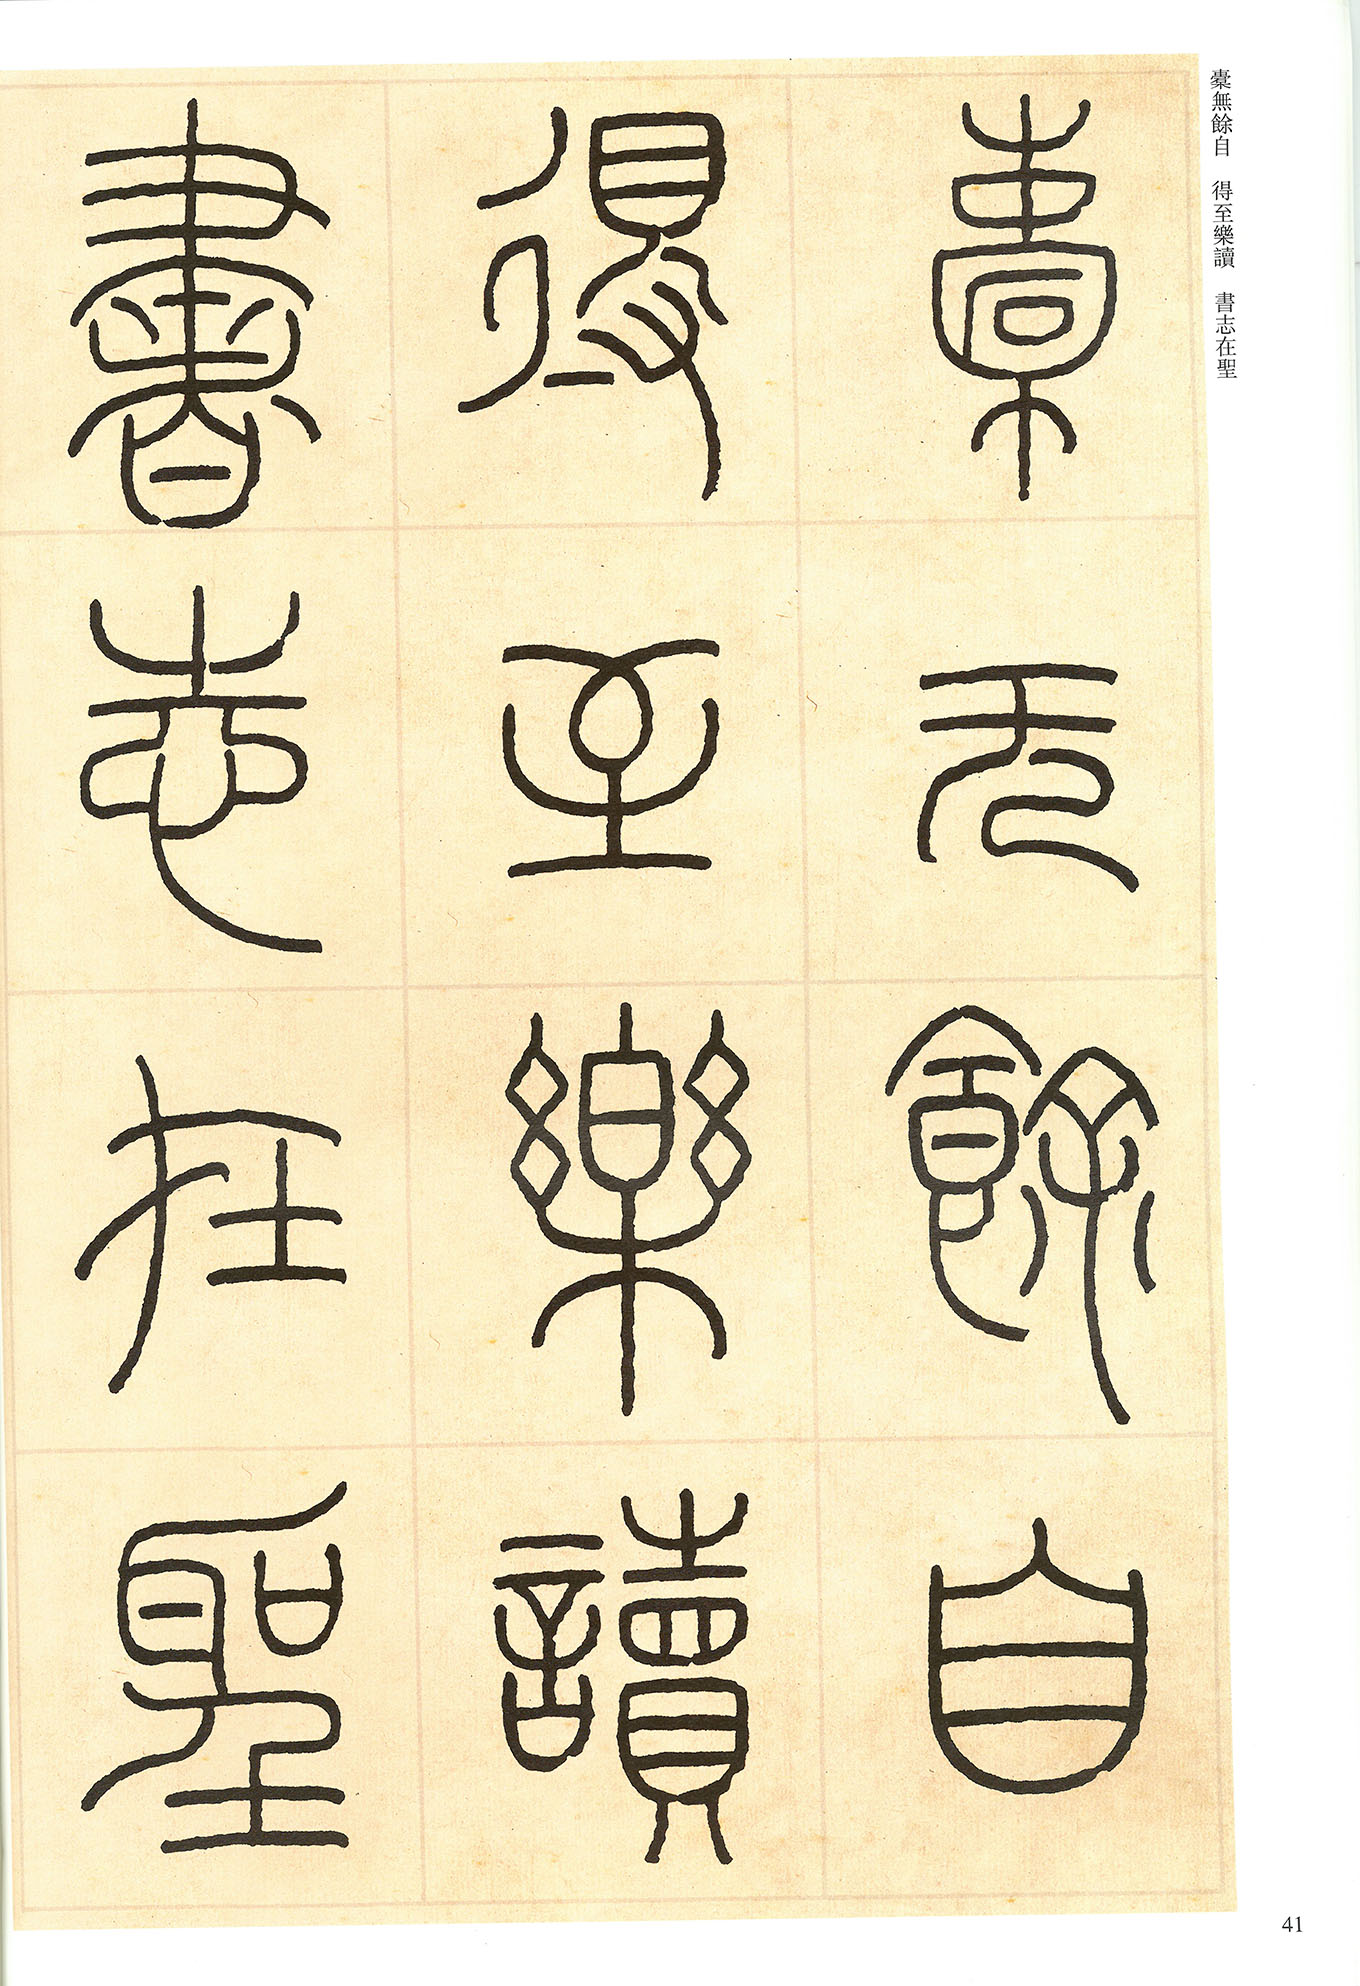 槀無餘自　得至樂讀　書志在聖
槀无餘自
得至樂讀
書志在聖
41